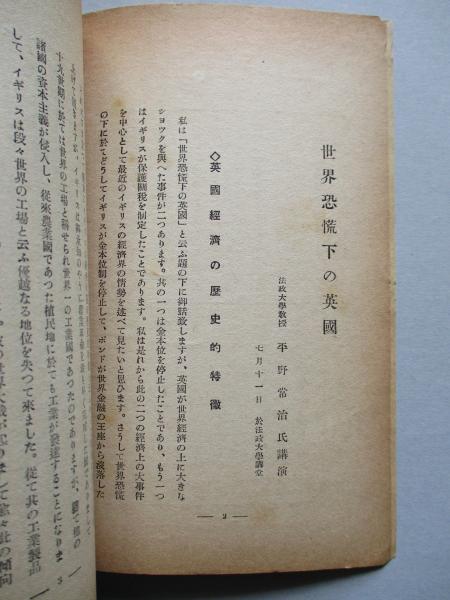 世界恐慌下の英國
法政大學敎授　平野常治氏講演
七月十一日　於法政大學講堂
◇英國經濟の歷史的特徵
私は「世界恐慌下の英國」と云ふ題の下に御話致しますが、英國が世界經濟の上に大きな
ショックを與へた事件が二つあります。其の一つは金本位を停止したことであり、もう一つ
はイギリスが保護關稅を制定したことであります。私は是れから此の二つの經濟上の大事件
を中心として最近のイギリスの經濟界の情勢を述べて見たいと思ひます。さうして世界恐慌
の下に於てどうしてイギリスが金本位制を停止して、ポンドが世界金融の王座から沒落した
— 2 —
十九世紀に於ては世界の工場と稱せられ世界一の工業國であつたのでありますが、
諸國の資本主義が侵入し、從來農業國であつた植民地に於ても工業が發達することになりま
して、イギリスは段々世界の工場と云ふ優越なる地位を失つて來ました。從て其の工業製品
3